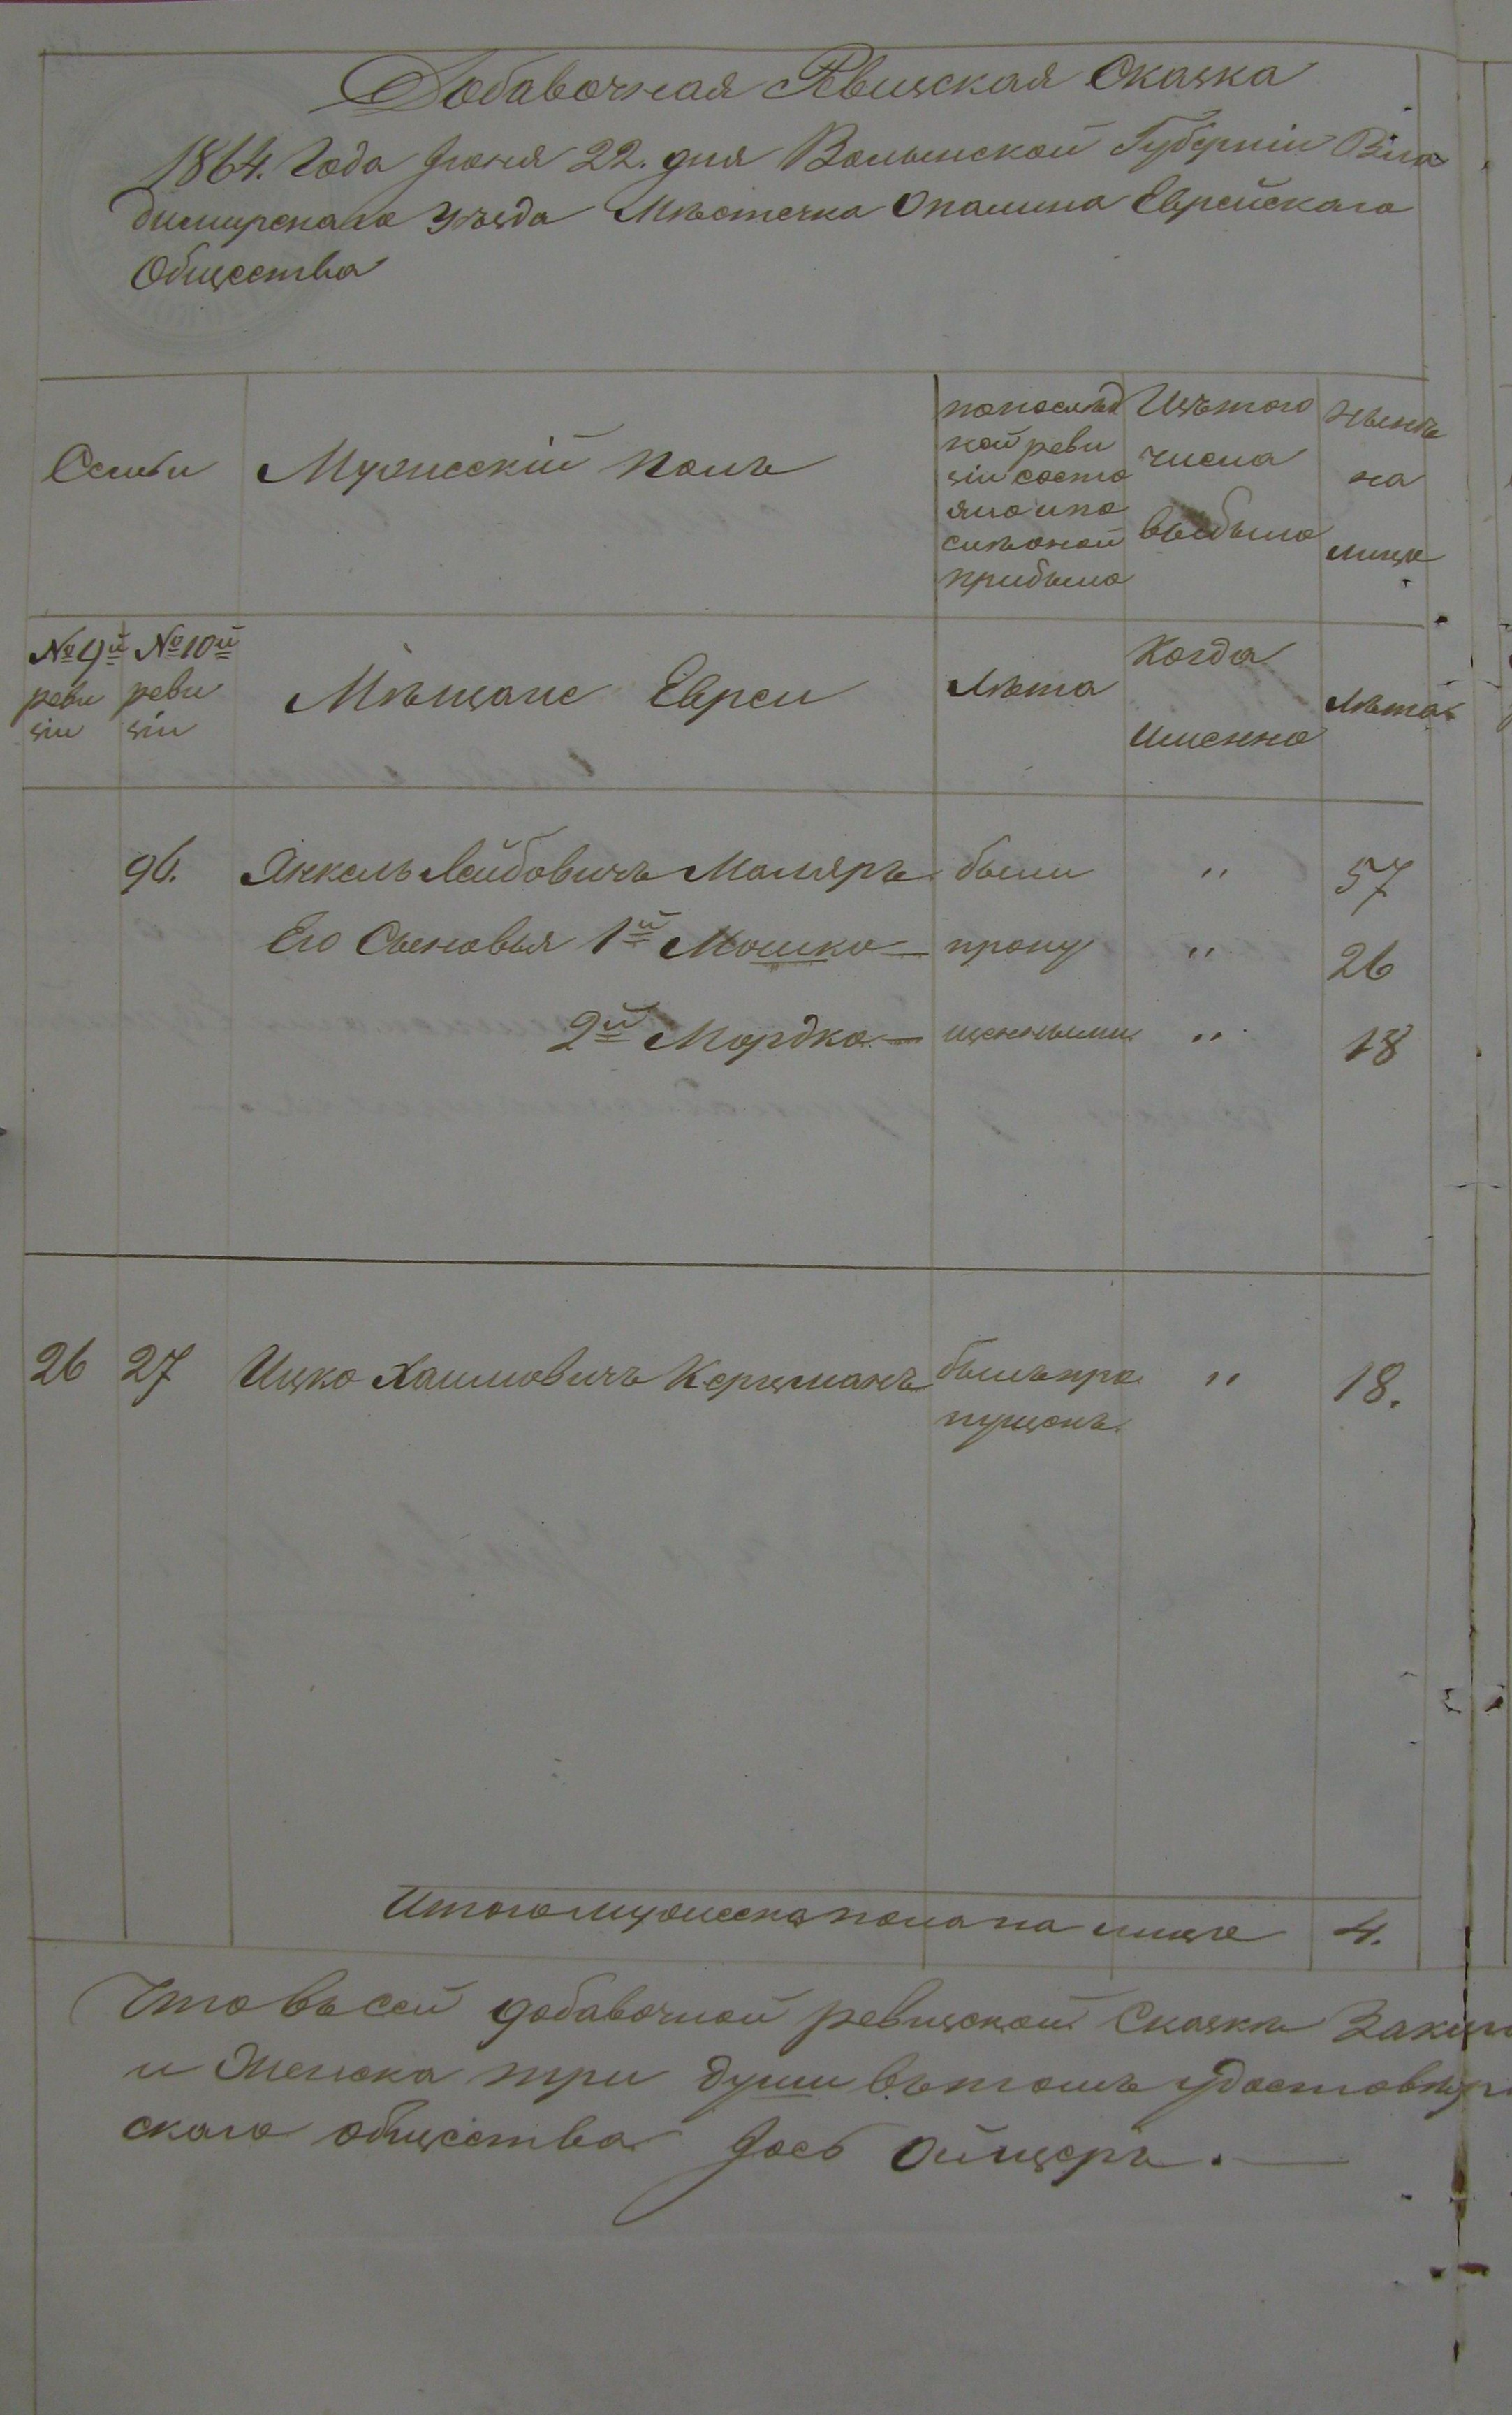 Добавочная Ревизская Сказка
1864. Года Іюня 22. дня Волынской Губерніи Вла
димирскаго Уѣзда Мѣстечка Опалина Еврейскаго
Общества
Семьи
Мужескій полъ
по послѣд
ней реви
зіи состо
яло и по
слѣ оной
прибыло
Изъ того
числа
выбыло
Нынѣ
на
лице
№ 9й
реви
зіи
№ 10й
реви
зіи
Мѣщане Евреи
Лѣта
Когда
Именно
Лѣта
96. Янкель Лейбовичъ Маляръ были " 57
Его Сыновья 1й Мошко — пропу " 26
2й Мордко — щенными " 18
26 27 Ицко Хаимовичъ Керцманъ былъ про " 18.
пущенъ
Итого мужеска пола на лице 4.
Что въ сей добавочной ревизской Сказкѣ
и Женска три души въ томъ
скаго общества Іось